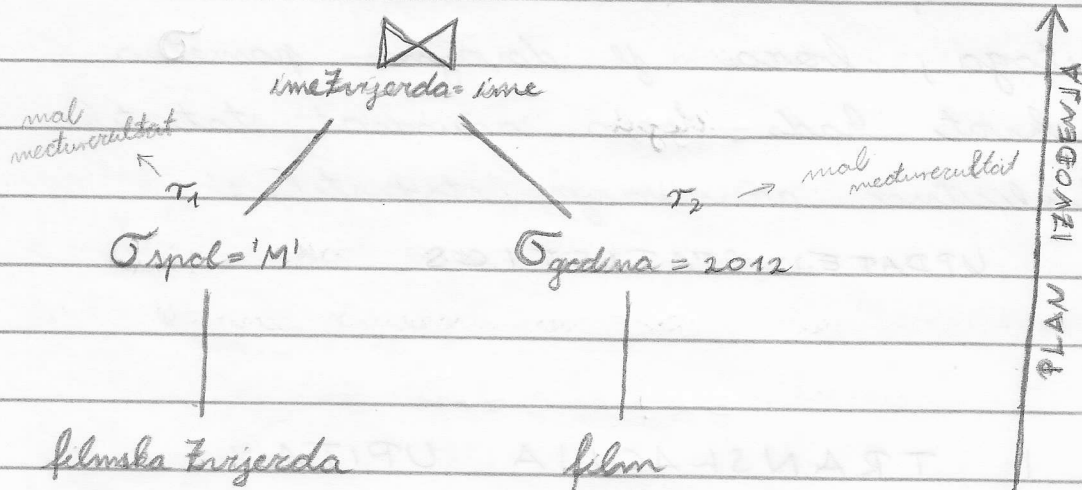 ⋈
imeZvijezda = ime
mal
međurezultat
r1
r2
mali
međurezultat
σ spol = 'M'
σ godina = 2012
filmska Zvijezda
film
PLAN IZVOĐENJA